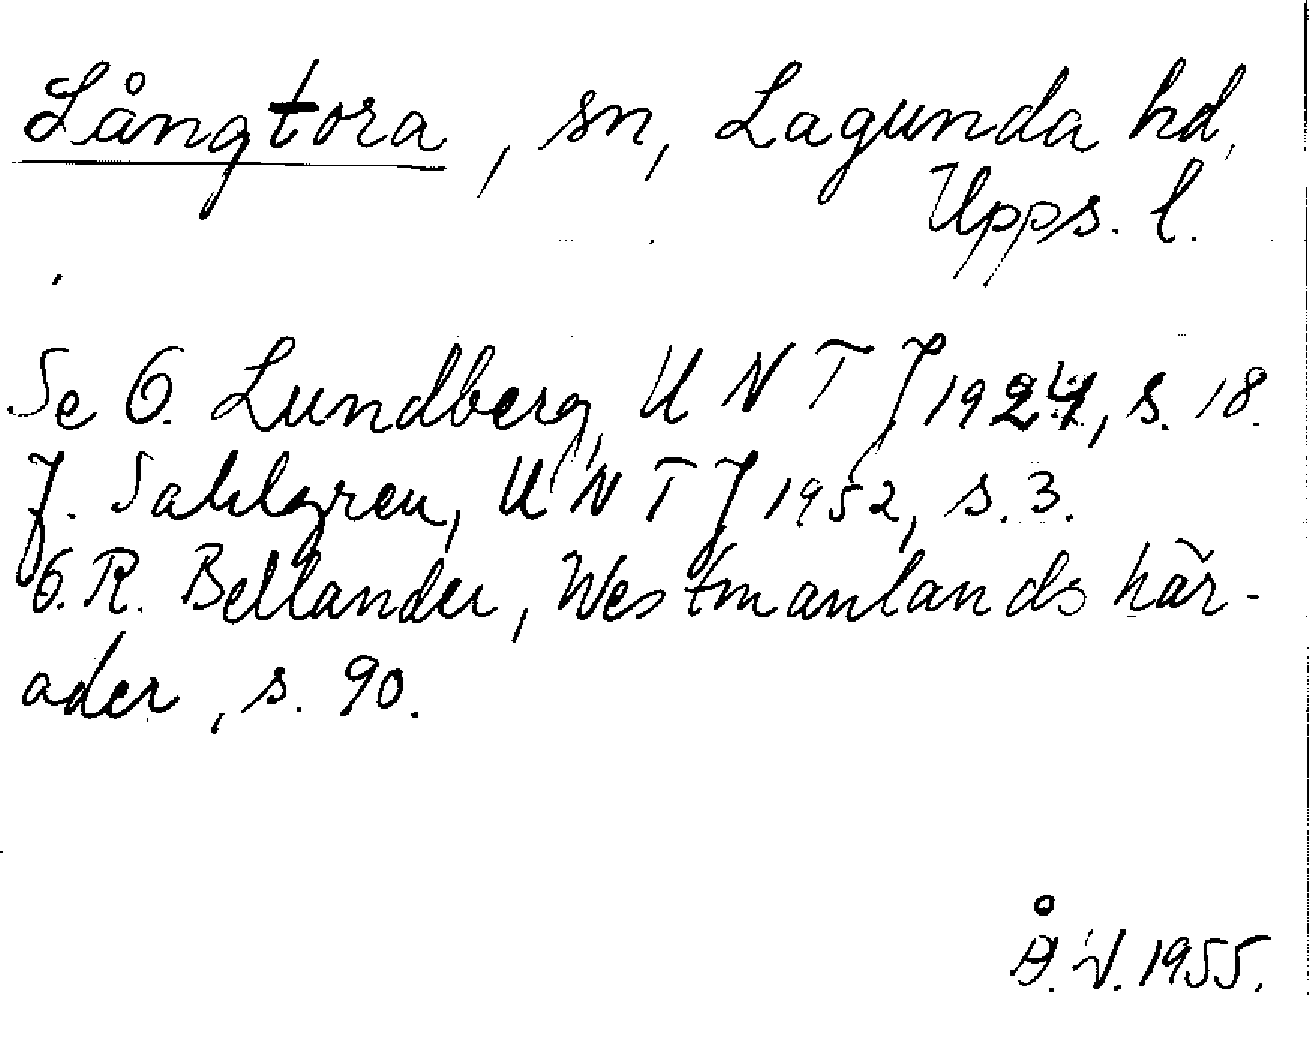 Långtora, sn, Lagunda hd,
Upps. l.
Se O. Lundberg, UNTJ 1924, s. 18.
J. Sahlgren, UNTJ 1952, s. 3.
O. R. Bellander, Westmanlands här-
ader, s. 90.
Å. V. 1955.